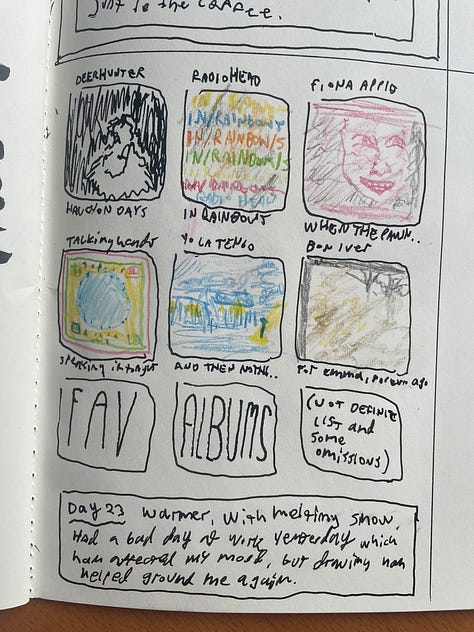 just is the coffee.
DEERHUNTER
RADIOHEAD
FIONA APPLE
IN/RAINBOW/S
IN/RAINBOW/S
IN/RAINBOW/S
RADIO HEAD
HALCYON DAYS
IN RAINBOWS
WHEN THE PAWN..
Talking heads
YO LA TENGO
BON IVER
speaking in tongues
AND THEN NOTHING..
For emma, forever ago
FAV
ALBUMS
(NOT DEFINITE
LIST and
some
omissions)
Day 23 warmer, with melting snow.
Had a bad day at work yesterday which
has affected my mood, but drawing has
helped ground me again.